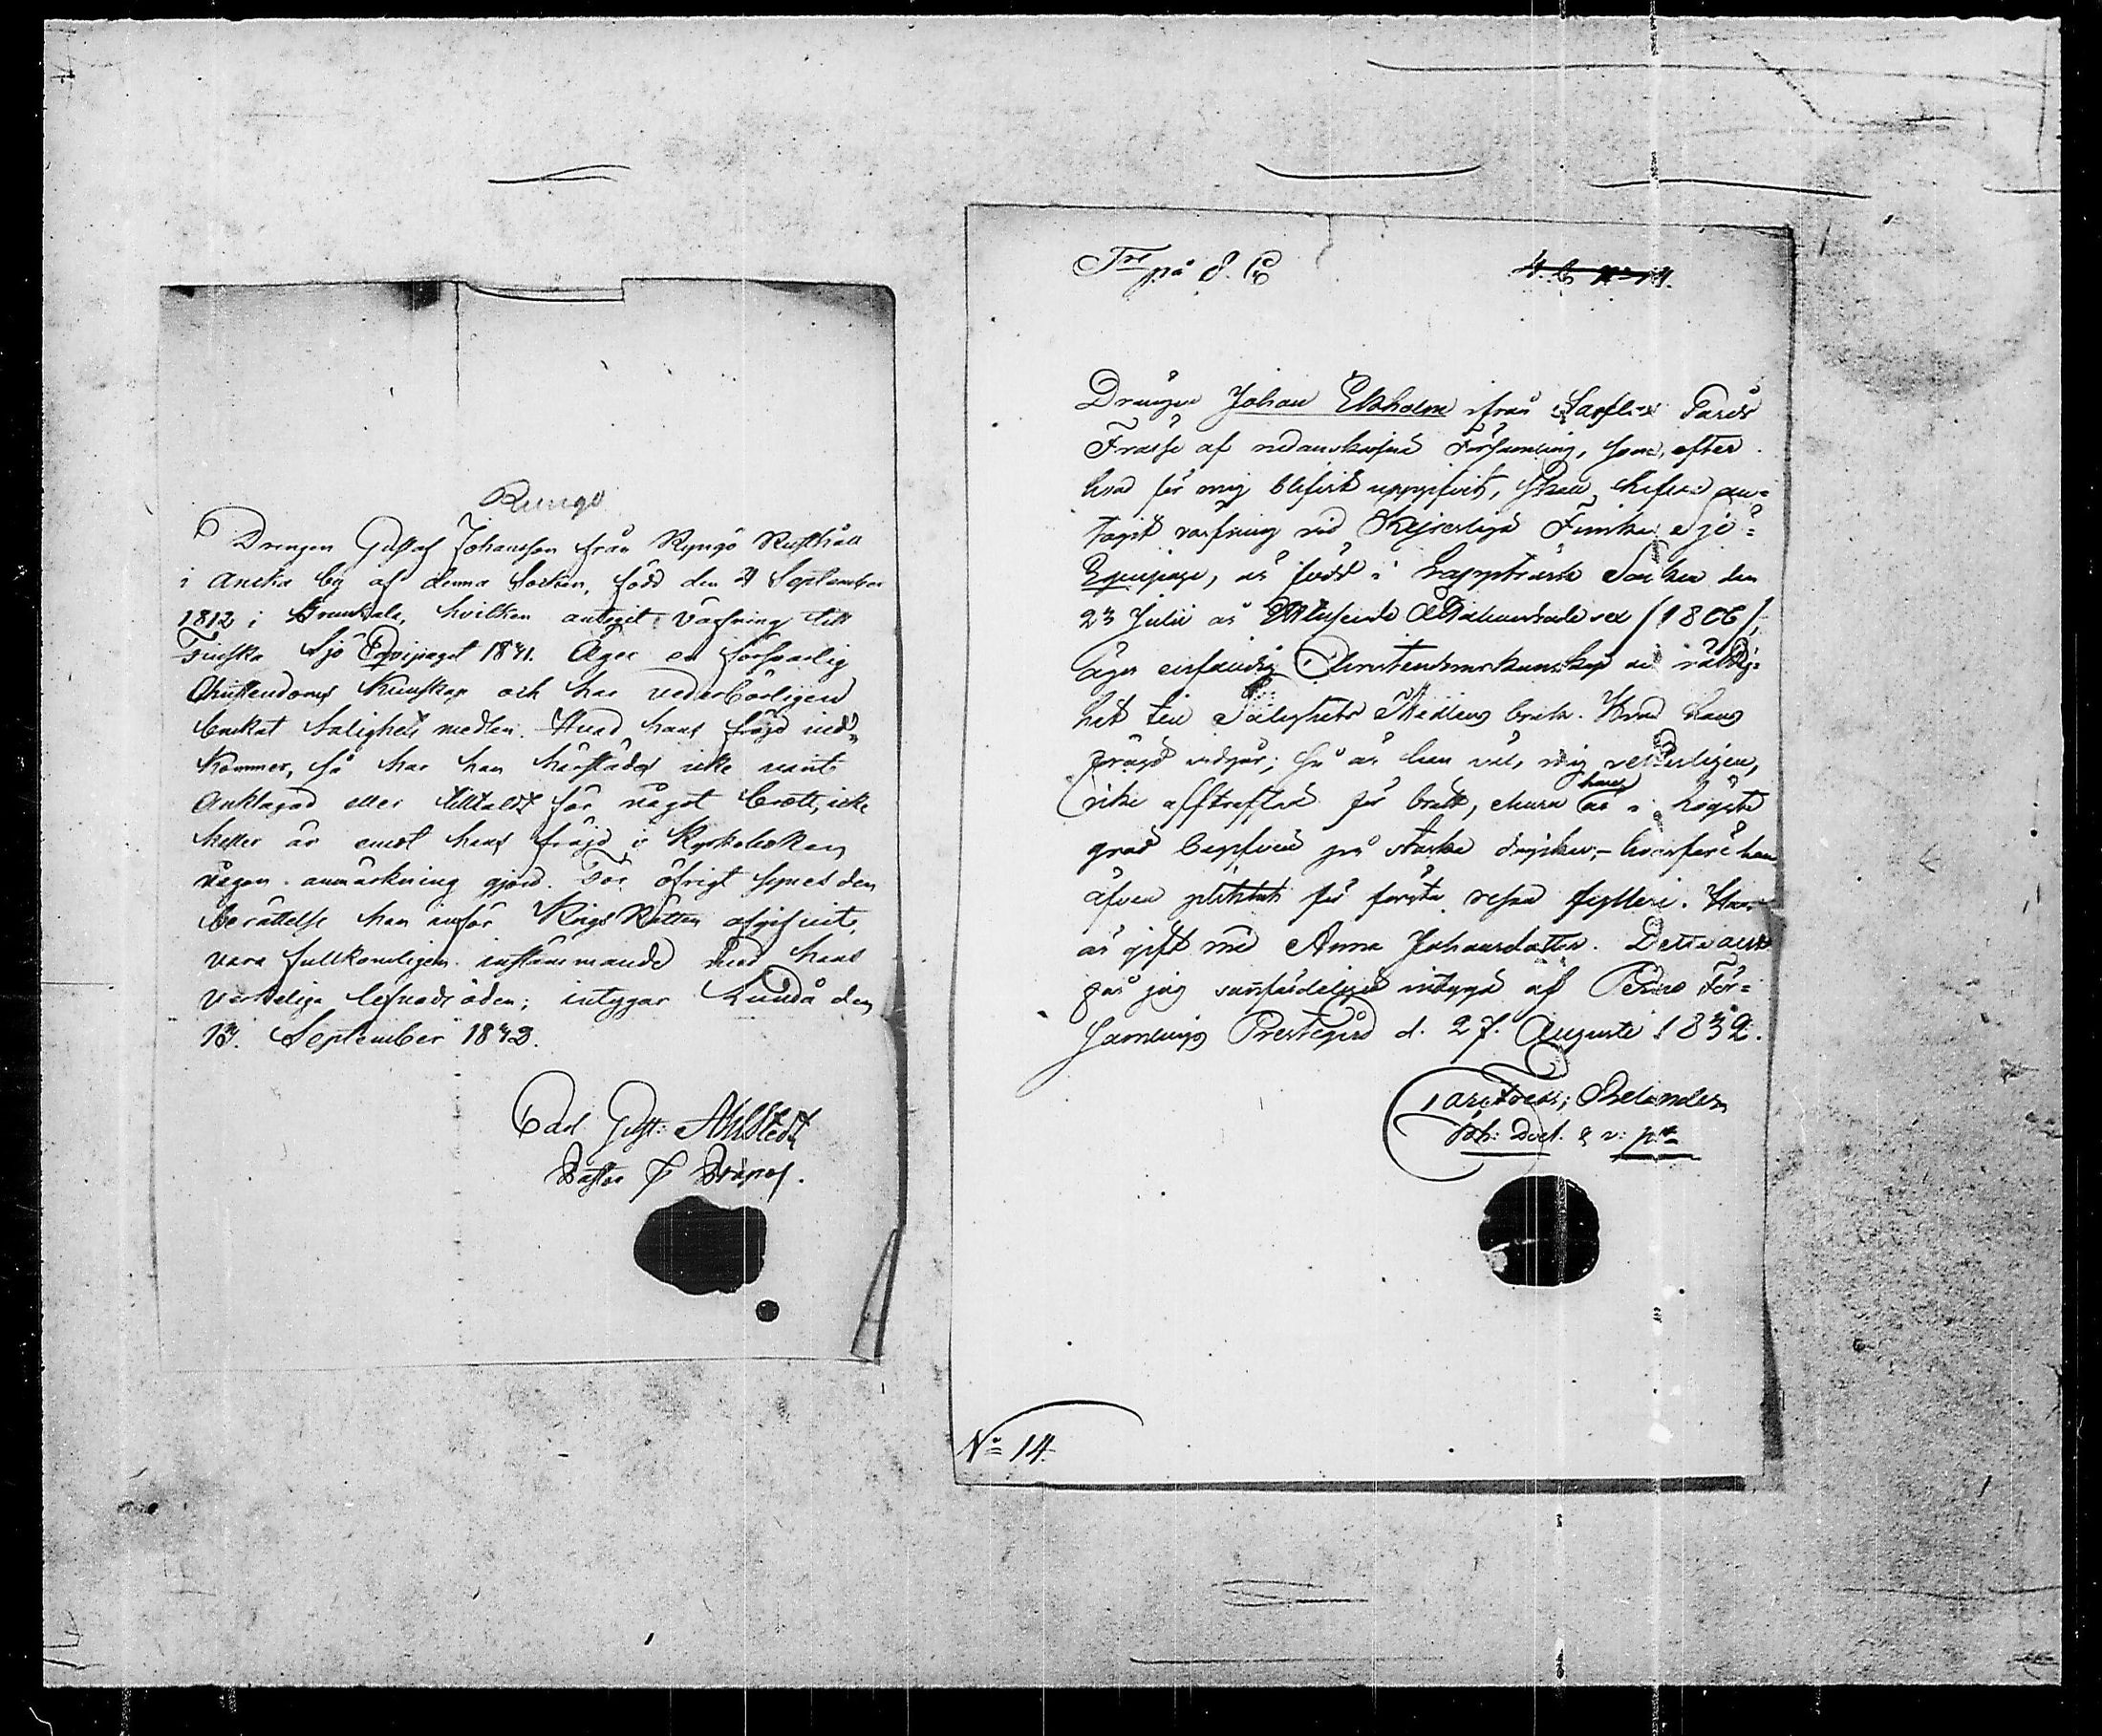 Rungo
Drengen Gustaf Johansson från Ryngö Rusthåll
i Ansku by af denna Socken, född den 21 September
1812 i Brunkala, hvilken antagit värfning till
Finska Sjö Equipaget 1831. Äger en försvarlig
Christendoms Kunskap och har vederbörligen
brukat Salighets medlen. Hvad hans frägd ved-
kommer, så har han härstädes icke varit
Anklagad eller tilltald för något brott, icke
heller är emot hans frägd i Kyrkoboken
någon anmärkning gjord. För öfrigt synes den
berättelse han inför Krigs Rätten afgifvit,
vara fullkomligen instämmande med hans
verkeliga lefnadsöden; intygar Lundå den
13. September 1832.
Carl Gust: Ahlstedt
Pastor & Præpos.
på S. C
4. C No 14.
Drängen Johan Ekholm ifrån Sarflax
af nedanskrifne Församling, som, efter
hvad för mig blifvit uppgifvit, skall hafva an-
tagit värfning vid Kejserliga Finska Sjö-
Equipage, är född i Lappträsk Socken den
23 Julii år Ettusende Ottahundrade sex (1806),
äger Christendomskunskap och rättig-
het till Salighets Medlens bruk. Hvad hans
frägd vidgår; så är han väl, mig veterligen,
icke afstraffad för brott, men är hans i högsta
grad begifven på starka drycker, hvarföre han
äfven pliktat för första resan fylleri. Han
är gift med Anna Johansdotter. Detta
jag sanfärdeligen intyga af Perno För-
samlings Prestegård d. 27. Augusti 1832.
No 14.